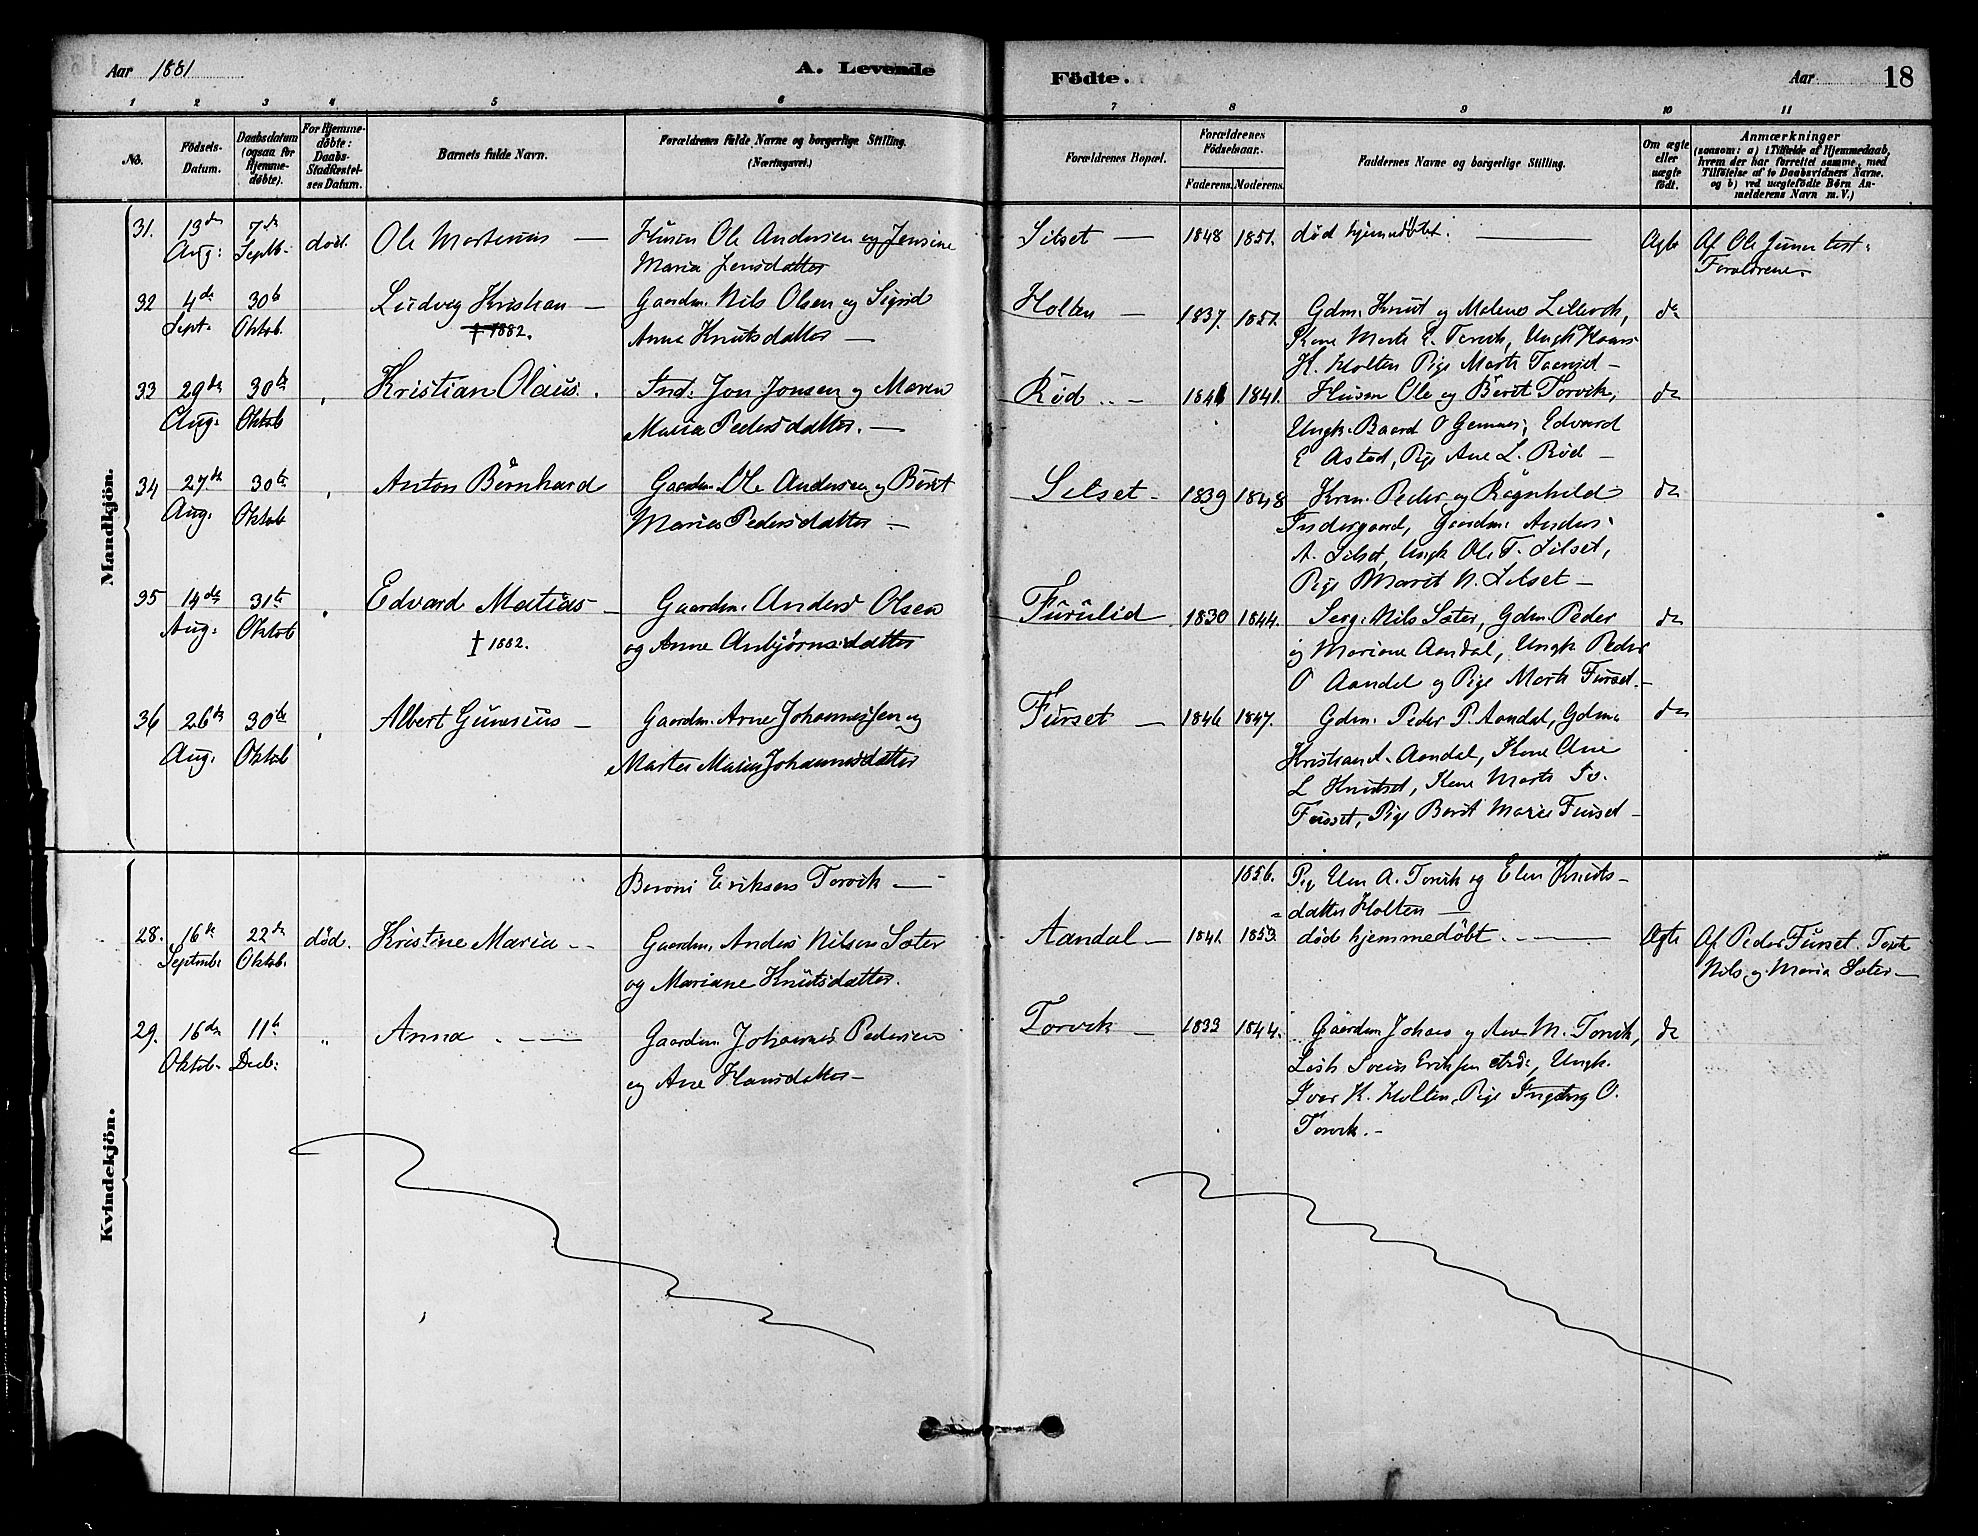 Aar 1881
A. Levende Födte.
Aar 18
1 2 3 4 5 6 7 8 9 10 11
No.
Födsels-Datum.
Daabsdatum (ogsaa for Hjemme-döbte).
For Hjemme-döbte: Daabs-Stadfæstel-ses Datum.
Barnets fulde Navn.
Forældrenes fulde Navne og borgerlige Stilling. (Næringsvei.)
Forældrenes Bopæl.
Forældrenes Födselsaar.
Faderens. Moderens.
Faddernes Navne og borgerlige Stilling.
Om ægte eller uægte födt.
Anmærkninger
(saasom: a) i Tilfælde af Hjemmedaab, hvem der har forrettet samme, med Tilföielse af to Daabsvidners Navne. og b) ved uægtefödte Börn An-melderens Navn m. V.)
Mandkjön.
31. 13de Aug: 7de Septb. død. Ole Martinus —
Husm Ole Andersen og Jensine
Maria Jensdatter
Silset — 1848 1851. død hjemmedøbt. — Ægte
Af Ole
Forældrene.
32 4de Sept. 30te Oktob. Ludvig Kristian —
† 1882.
Gaardm. Nils Olsen og Sigrid
Anne Knutsdatter —
Holten — 1837. 1851.
Gdm. Knut og Malene Lillevik,
Kone Marte E. Torvik, Ungk
K. Holten Pige Marte
do
33 29de Aug. 30te Oktob Kristian Olaus.
Ind. Jon Jonsen og Maren
Maria Pedersdatter. —
Röd — 1841 1841.
Husm Ole og Beret Torvik,
Ungk. Baard O Gemnes, Edvard
E Astad, Pige Ane L. Röd —
do
34 27de Aug. 30te Oktob Anton Bernhard
Gaardm. Ole Andersen og Beret
Maria Pedersdatter —
Silset — 1839 1848
Peder og Ragnhild
Indergaard, Gaardm. Anders
A. Silset, Ungk Ole T. Silset,
Pige Marit N. Silset —
do
35 14de Aug: 31te Oktob Edvard Matias —
† 1882.
Gaardm. Anders Olsen
og Anne Anbjörnsdatter
Furulid 1830 1844.
Serg. Nils Sæter, Gdm. Peder
og Mariane Aandal, Ungk Peder
O Aandal og Pige Marte Furset —
do
36 26de Aug. 30te Oktob Albert Gunerius —
Gaardm. Arne Johannessen og
Marte Maria Johannesdatter
Furset — 1846 1847.
Gdm. Peder P. Aandal, Gdm
Kristian A. Aandal, Kone Ane
L Knutset, Kone Marte Iv.
Furset, Pige Beret Marie Furset —
do
Kvindekjön.
Beroni Eriksen Torvik —
1856. Pig Elen A. Torvik og Elen Knuts-
datter Holten —
28. 16de Septemb. 22de Oktob. död. Kristine Maria —
Gaardm. Anders Nilsen Sæter
og Mariane Knutsdatter.
Aandal — 1841. 1853. död hjemmedöbt. — Ægte
Af Peder Furset. Test
Nils og Maria Sæter —
29. 16de Oktob. 11te Decb: " Anna —
Gaardm. Johannes Pedersen
og Ane Hansdatter —
Torvik — 1833 1844.
Gaardm Johans og Ane M. Torvik,
Svein Eriksen Ungk.
Iver K. Holten, Pige Ingeborg O.
Torvik. —
do